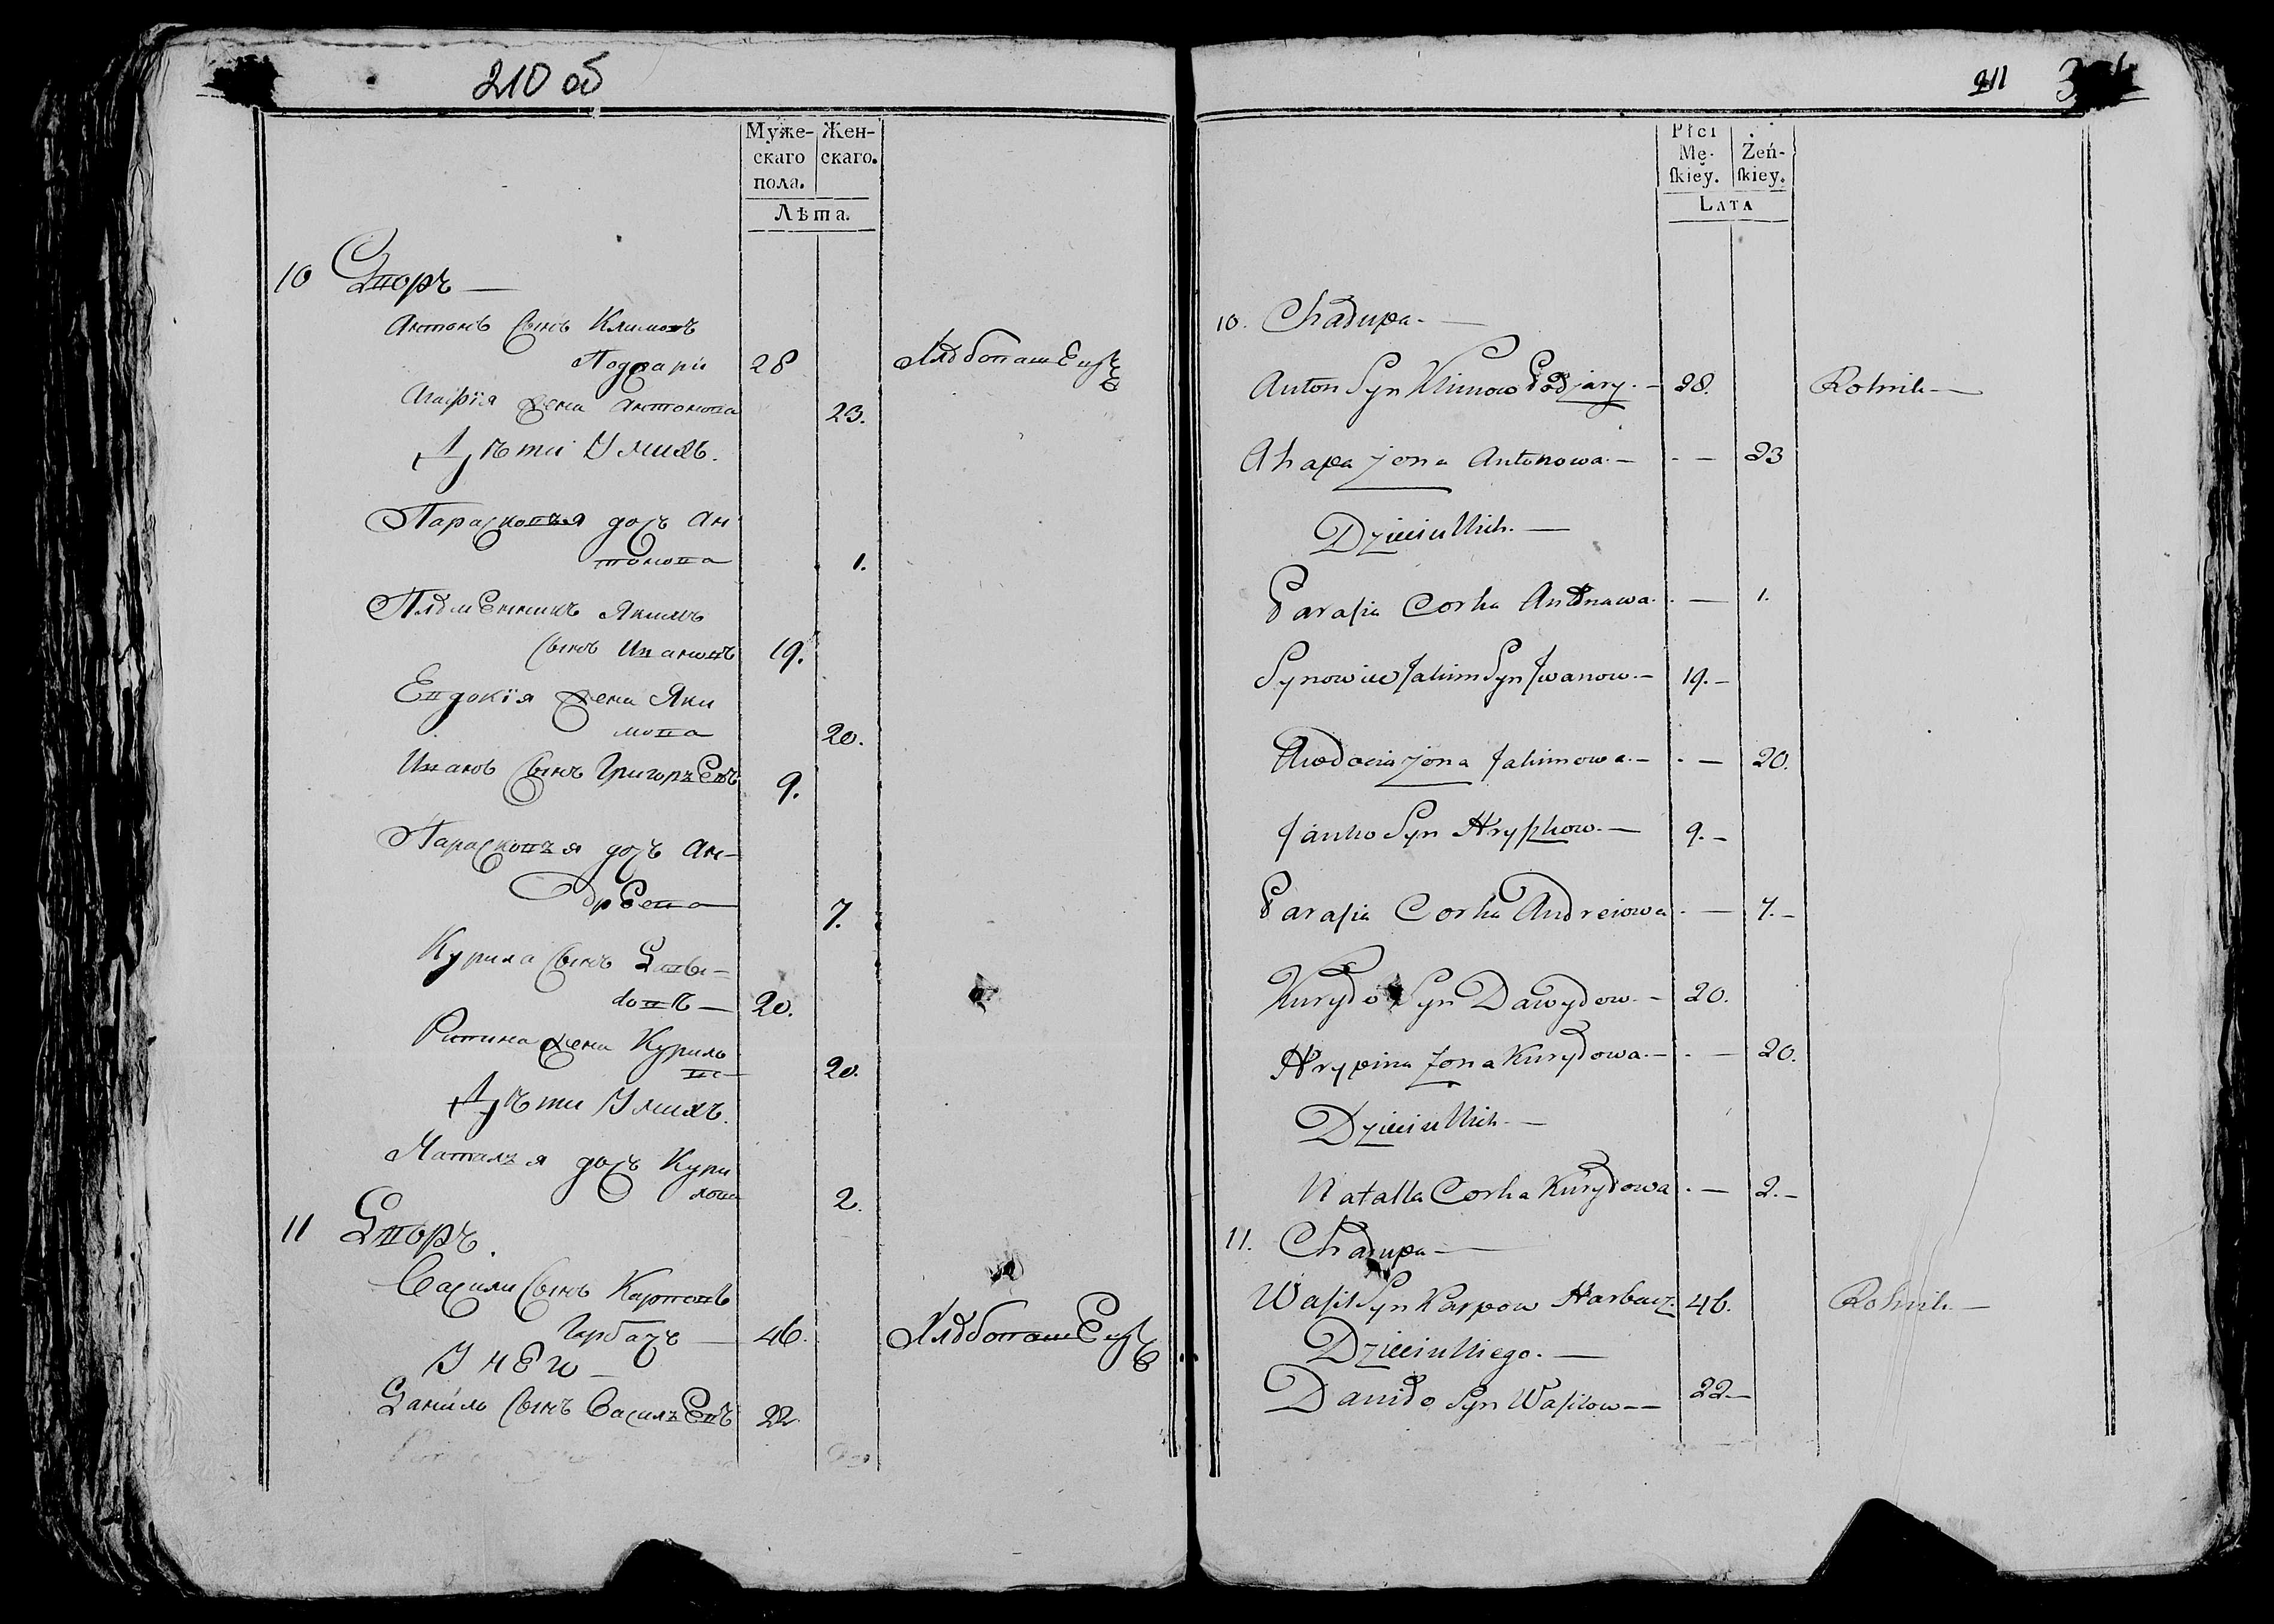 210 об
Муже- Жен-
скаго скаго.
пола.
Лѣта.
10 Дворъ —
Антонъ Сынъ Климовъ
Подяари 28 Хлѣбопашецъ
Агафія жена Антонова 23.
Дѣти У нихъ.
Парасковья дочь Ан
тонова 1.
Племенникъ Якимъ
Сынъ Ивановъ 19.
Евдокія жена Яки
мова 20.
Иванъ Сынъ Григорьевъ 9.
Парасковья дочь Ан-
дреева 7.
Курила Сынъ
довъ — 20.
жена Курило
ва 20.
Дѣти У нихъ.
Наталья дочь Кури
лова 2.
11 Дворъ.
Васили Сынъ Карповъ
Гарбачъ — 46. Хлѣбопашецъ
У него —
Данило Сынъ Васильевъ 22
211
Płci
Mę- Żeń-
ſkiey. ſkiey.
LATA
10. Chałupa. —
Anton Syn Klimow Podjary. — 28. Rolnik —
Ahapa żona Antonowa. — . — 23
Dzieci u Nich. —
Paraſia Corka Antonawa. . — 1.
Synowiec Jakim Syn Iwanow. — 19. —
Awdocia żona Jakimowa. — . — 20.
Janko Syn Hryſzkow. — 9. —
Paraſia Corka Andreiowa . — 7. —
Kuryło Syn Dawydow. — 20.
Hrypina żona Kuryłowa. — . — 20.
Dzieci u Nich. —
Natalla Corka Kuryłowa . — 2. —
11. Chałupa —
Waſil Syn Karpow Harbacz. 46. Rolnik. —
Dzieci u Niego. —
Daniło Syn Waſilow — — 22 —